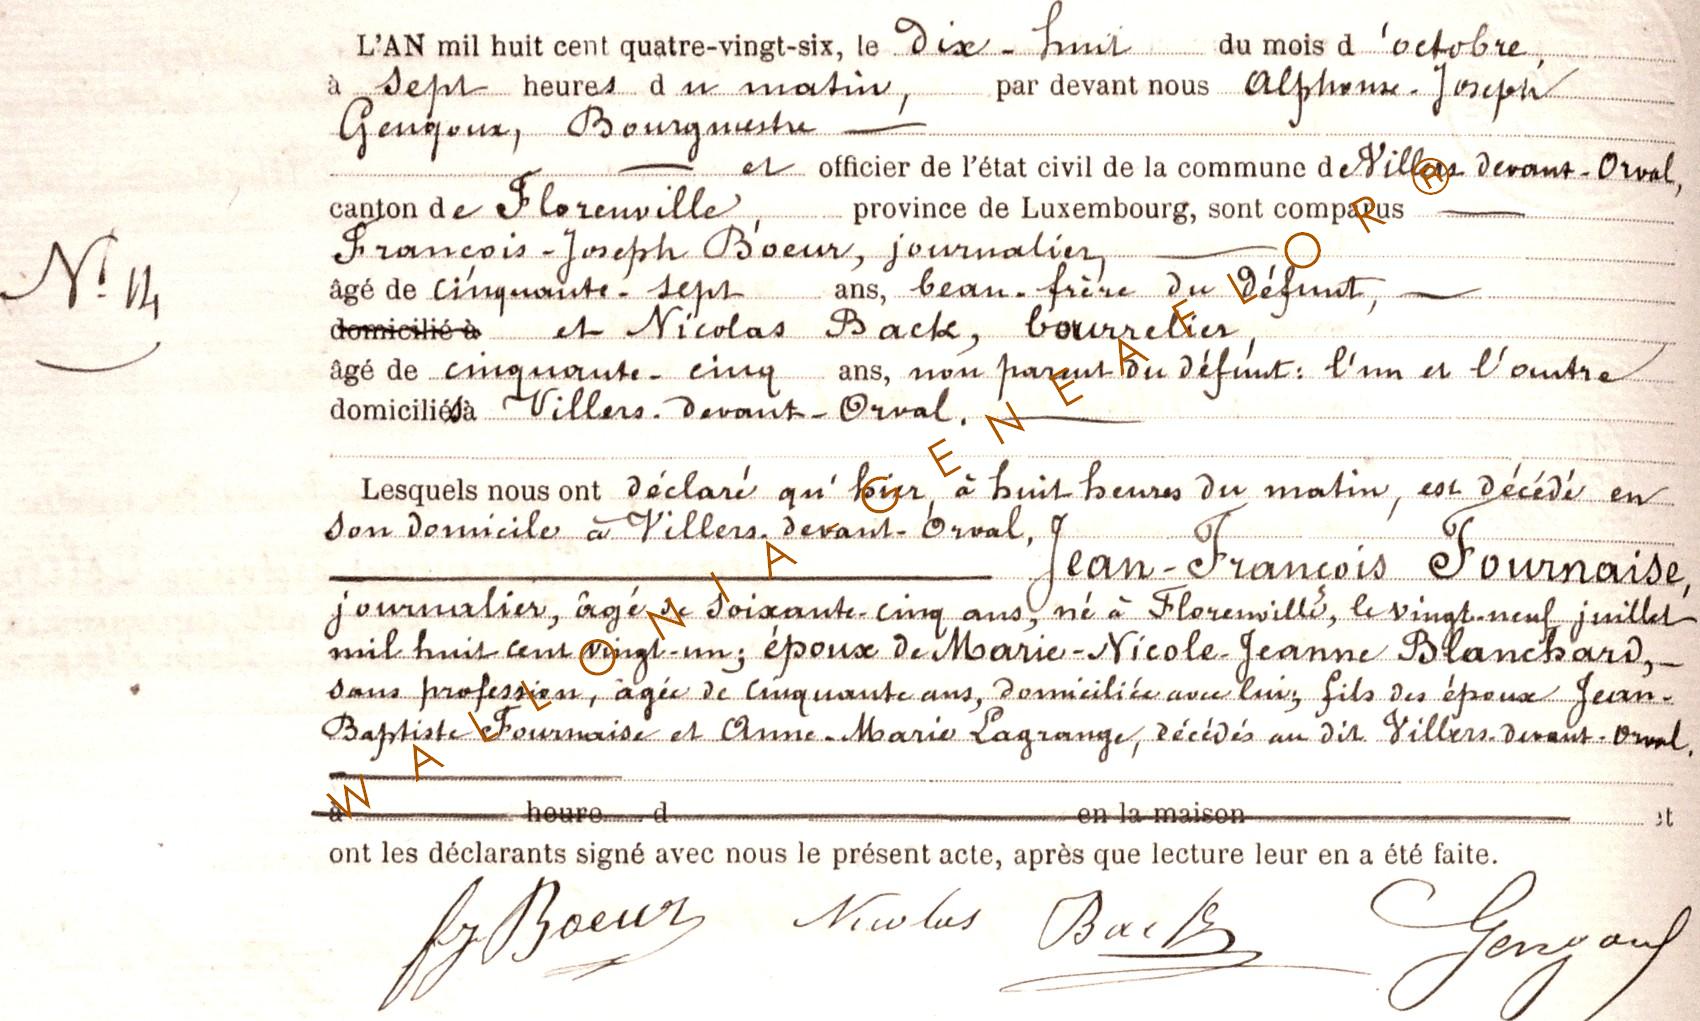 L'AN mil huit cent quatre-vingt-six, le dix-huit du mois d'octobre,
à sept heures du matin, par devant nous Alphonse-Joseph
Gengoux, Bourgmestre
et officier de l'état civil de la commune de Villers devant-Orval,
canton de Florenville, province de Luxembourg, sont comparus
François-Joseph Boeur, journalier,
âgé de cinquante-sept ans, beau-frère du défunt,
domicilié à et Nicolas Back, bourrelier,
N° 14
âgé de cinquante-cinq ans, non parent du défunt: l'un et l'autre
domiciliés à Villers-devant-Orval.
Lesquels nous ont déclaré qu'hier, à huit heures du matin, est décédé en
son domicile à Villers-devant-Orval,
Jean-François Fournaise,
journalier, âgé de soixante-cinq ans, né à Florenville, le vingt-neuf juillet
mil huit cent vingt-un; époux de Marie-Nicole-Jeanne Blanchard,
sans profession, âgée de cinquante ans, domiciliée avec lui; fils des époux Jean-
Baptiste Fournaise et Anne-Marie Lagrange, décédés au dit Villers-devant-Orval.
à heure d en la maison et
ont les déclarants signé avec nous le présent acte, après que lecture leur en a été faite.
fj Boeur Nicolas Back Gengoux
WALLONIA-GENEAFLOR®